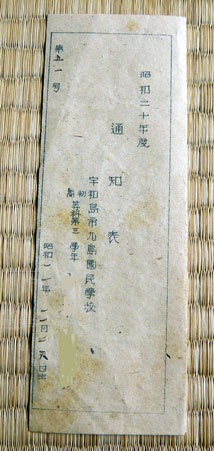 昭和二十年度
通知表
宇和島市九島國民學校
初
高
等科第三學年
昭和一一年
日生
第五一号